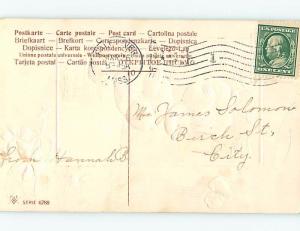 Postkarte - Carte postale - Post card - Cartolina postale
Briefkaart - Brefkort - Correspondenzkarte - Dopisnica
Dopisnice - Karta korespondencyjna - Levelező-Lap
Tarjeta postal - Cartão postal - ОТКРЫТОЕ ПИСЬМО
U.S. POSTAGE
ONE CENT
1
Mr. James Solomon
Birch St.,
City.
From Hannah B.
SERIE 6788